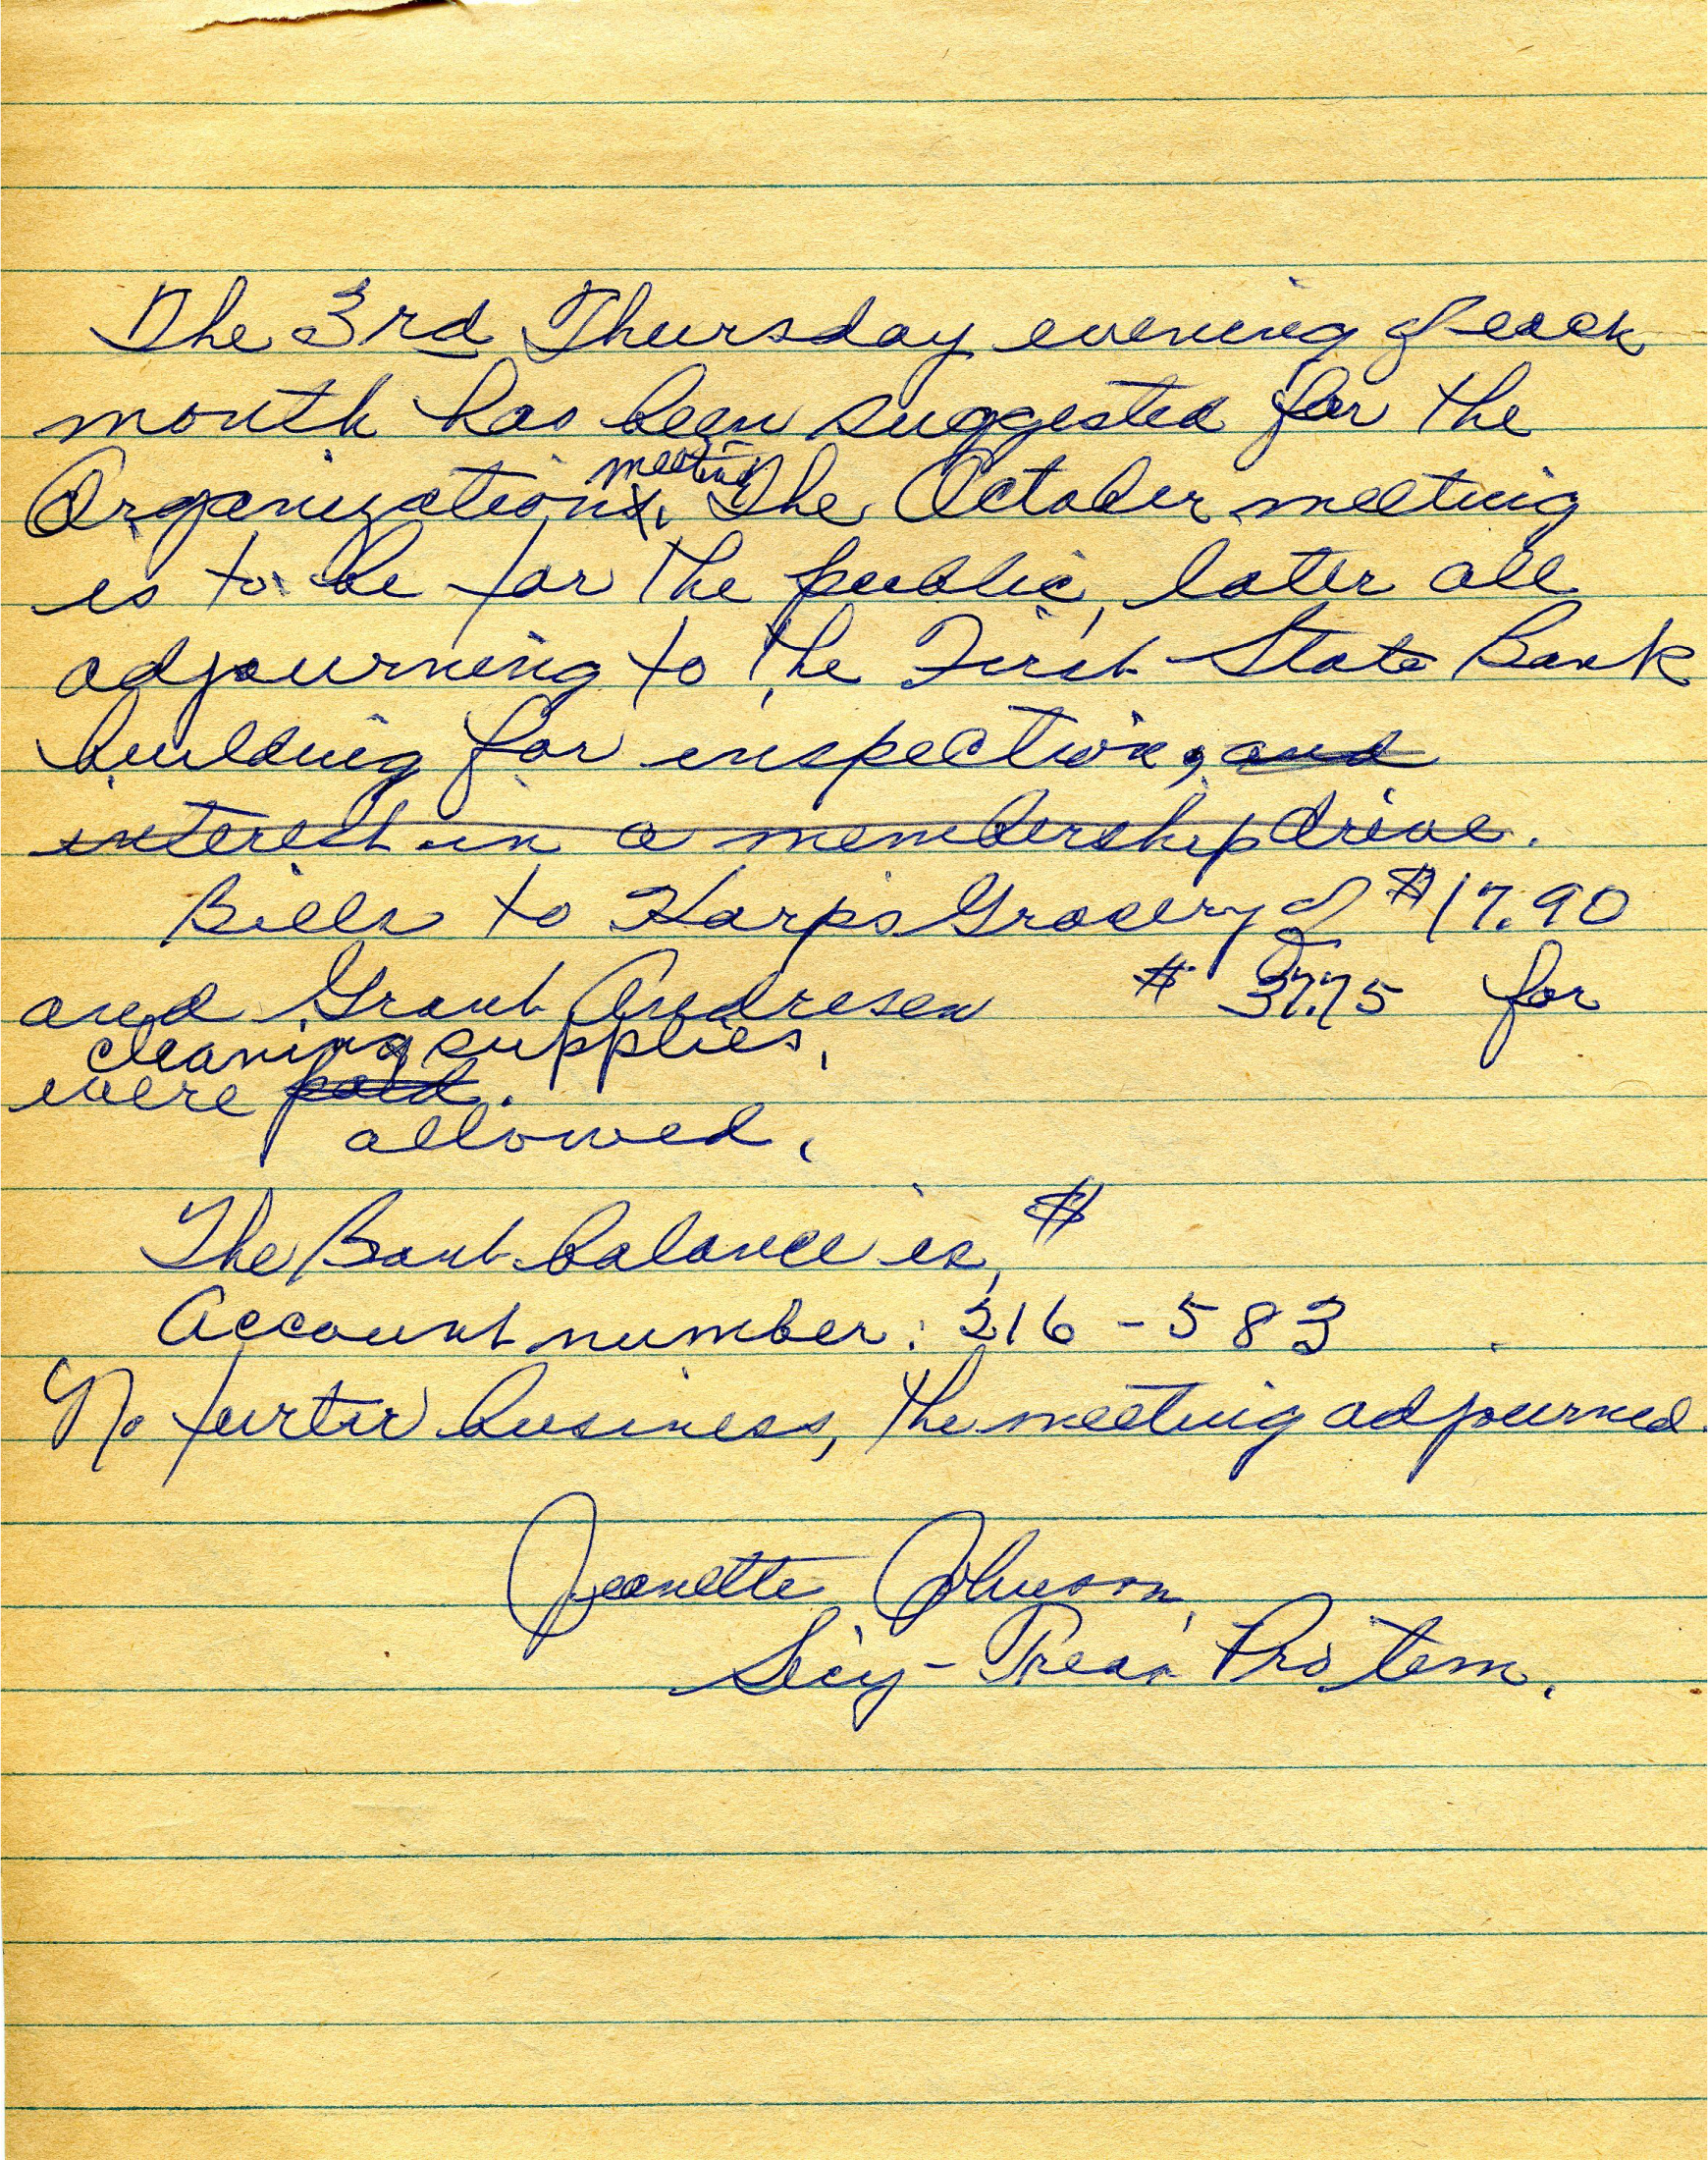 The 3rd Thursday evening of each
month has been suggested for the
meeting
Organizations. The October meeting
is to be for the public, later all
adjourning to the First State Bank
building for inspection, and
interest in a membership drive.
Bills to Harps Grocery of $17.90
and Grant Andresen $37.75 for
cleaning supplies,
were paid.
allowed.
The Bank balance is, $
Account number: 216-583
No furter business, the meeting adjourned.
Jeanette Johnson,
Secy-Treas Pro tem.